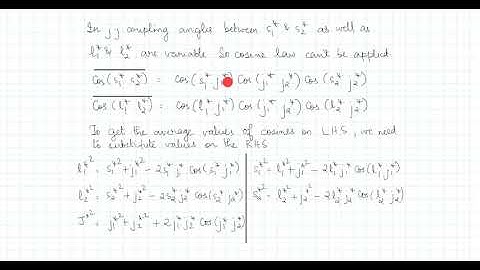 In jj coupling angles between s₁* & s₂* as well as
l₁* & l₂* are variable So cosine law can't be applied
\overline{Cos(s₁* s₂*)} = Cos(s₁* j₁*) Cos(j₁* j₂*) Cos(s₂* j₂*)
\overline{Cos(l₁* l₂*)} = Cos(l₁* j₁*) Cos(j₁* j₂*) Cos(l₂* j₂*)
To get the average values of cosines on LHS, we need
to substitute values on the RHS
l₁*² = s₁*² + j₁*² − 2s₁* j₁* Cos(s₁* j₁*)
s₁*² = l₁*² + j₁*² − 2l₁* j₁* Cos(l₁* j₁*)
l₂*² = s₂*² + j₂*² − 2s₂* j₂* Cos(s₂* j₂*)
s₂*² = l₂*² + j₂*² − 2l₂* j₂* Cos(l₂* j₂*)
J*² = j₁*² + j₂*² + 2j₁* j₂* Cos(j₁* j₂*)